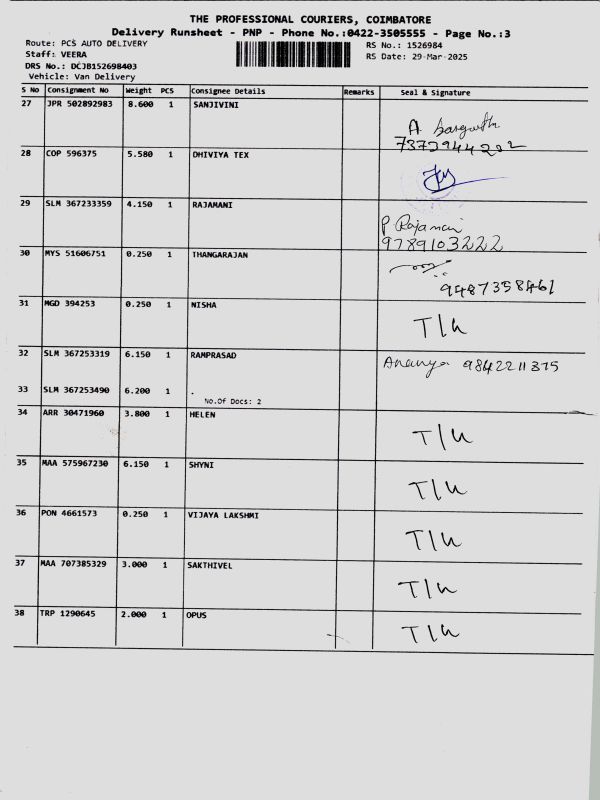 THE PROFESSIONAL COURIERS, COIMBATORE
Delivery Runsheet - PNP - Phone No.:0422-3505555 - Page No.:3
Route: PCS AUTO DELIVERY
Staff: VEERA
DRS No.: DCJB152698403
Vehicle: Van Delivery
RS No.: 1526984
RS Date: 29-Mar-2025
S No Consignment No Weight PCS Consignee Details Remarks Seal & Signature
27 JPR 502892983 8.600 1 SANJIVINI
A
7373944202
28 COP 596375 5.580 1 DHIVIYA TEX
29 SLM 367233359 4.150 1 RAJAMANI
P Rajamani
9789103222
30 MYS 51606751 0.250 1 THANGARAJAN
9487358461
31 MGD 394253 0.250 1 NISHA
T/L
32 SLM 367253319 6.150 1 RAMPRASAD
Ananya 9842211375
33 SLM 367253490 6.200 1 .
No.Of Docs: 2
34 ARR 30471960 3.800 1 HELEN
T/L
35 MAA 575967230 6.150 1 SHYNI
T/L
36 PON 4661573 0.250 1 VIJAYA LAKSHMI
T/L
37 MAA 707385329 3.000 1 SAKTHIVEL
T/L
38 TRP 1290645 2.000 1 OPUS
T/L